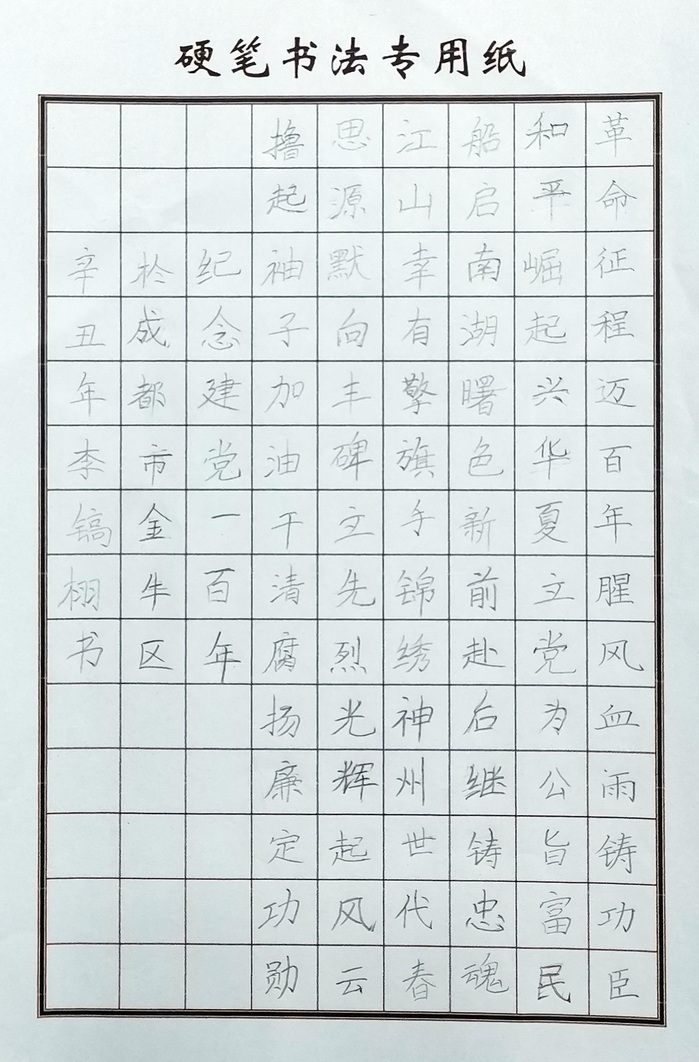 硬笔书法专用纸
革命征程迈百年腥风血雨铸功臣
和平崛起兴华夏立党为公旨富民
船启南湖曙色新前赴后继铸忠魂
江山幸有擎旗手锦绣神州世代春
思源默向丰碑立先烈光辉起风云
撸起袖子加油干清腐扬廉定功勋
纪念建党一百年
於成都市金牛区
辛丑年李镐栩书